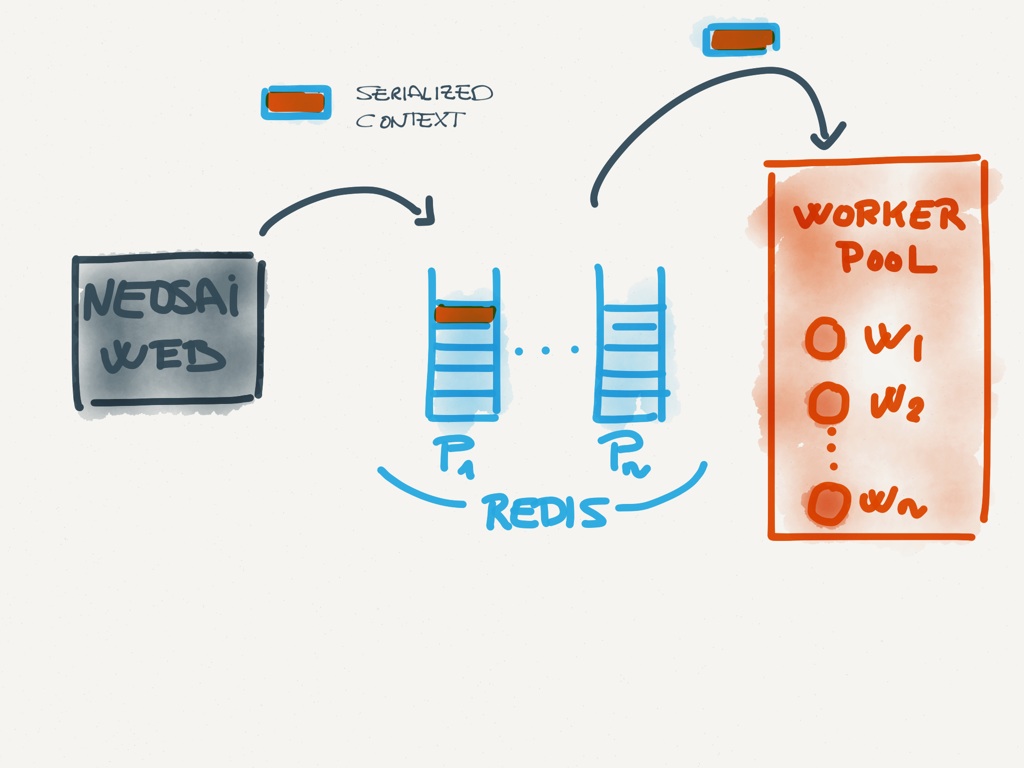 SERIALIZED
CONTEXT
NEOSAi
WEB
P1
Pn
REDIS
WORKER
POOL
W1
W2
Wn